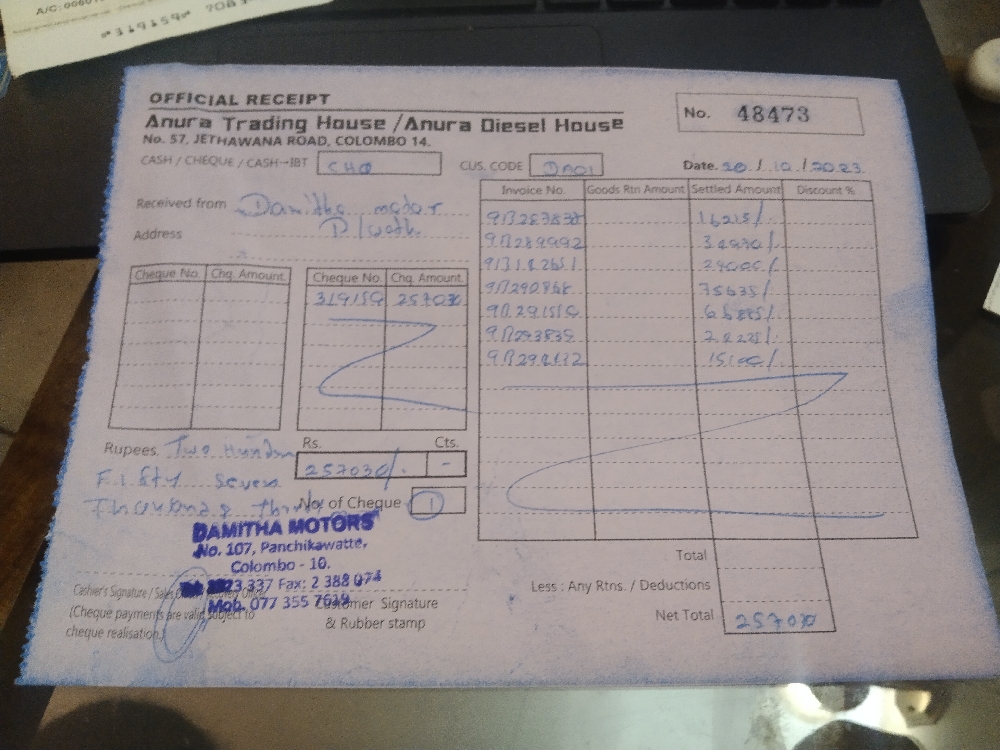 A/C: 0060
319159 708
OFFICIAL RECEIPT
Anura Trading House / Anura Diesel House
No. 57, JETHAWANA ROAD, COLOMBO 14.
No. 48473
CASH / CHEQUE / CASH-IBT CHQ
CUS. CODE DA01
Date. 20 / 10 / 2023
Received from Damitha motor
Address P/wath
Invoice No. Goods Rtn Amount Settled Amount Discount %
16215/.
34970/.
24000/.
75635/
15100/.
Cheque No. Chq. Amount. Cheque No. Chq. Amount.
319159 257030
Rupees. Two Hundred
Fifty Seven
Thousand & thirty
Rs. Cts.
257030/. -
No. of Cheque 1
DAMITHA MOTORS
No. 107, Panchikawatte,
Colombo - 10.
337 Fax: 2 388 074
Mob. 077 355 7619
Cashier's Signature / Sales
(Cheque payments are valid subject to
cheque realisation.)
Customer Signature
& Rubber stamp
Total
Less : Any Rtns. / Deductions
Net Total 257030